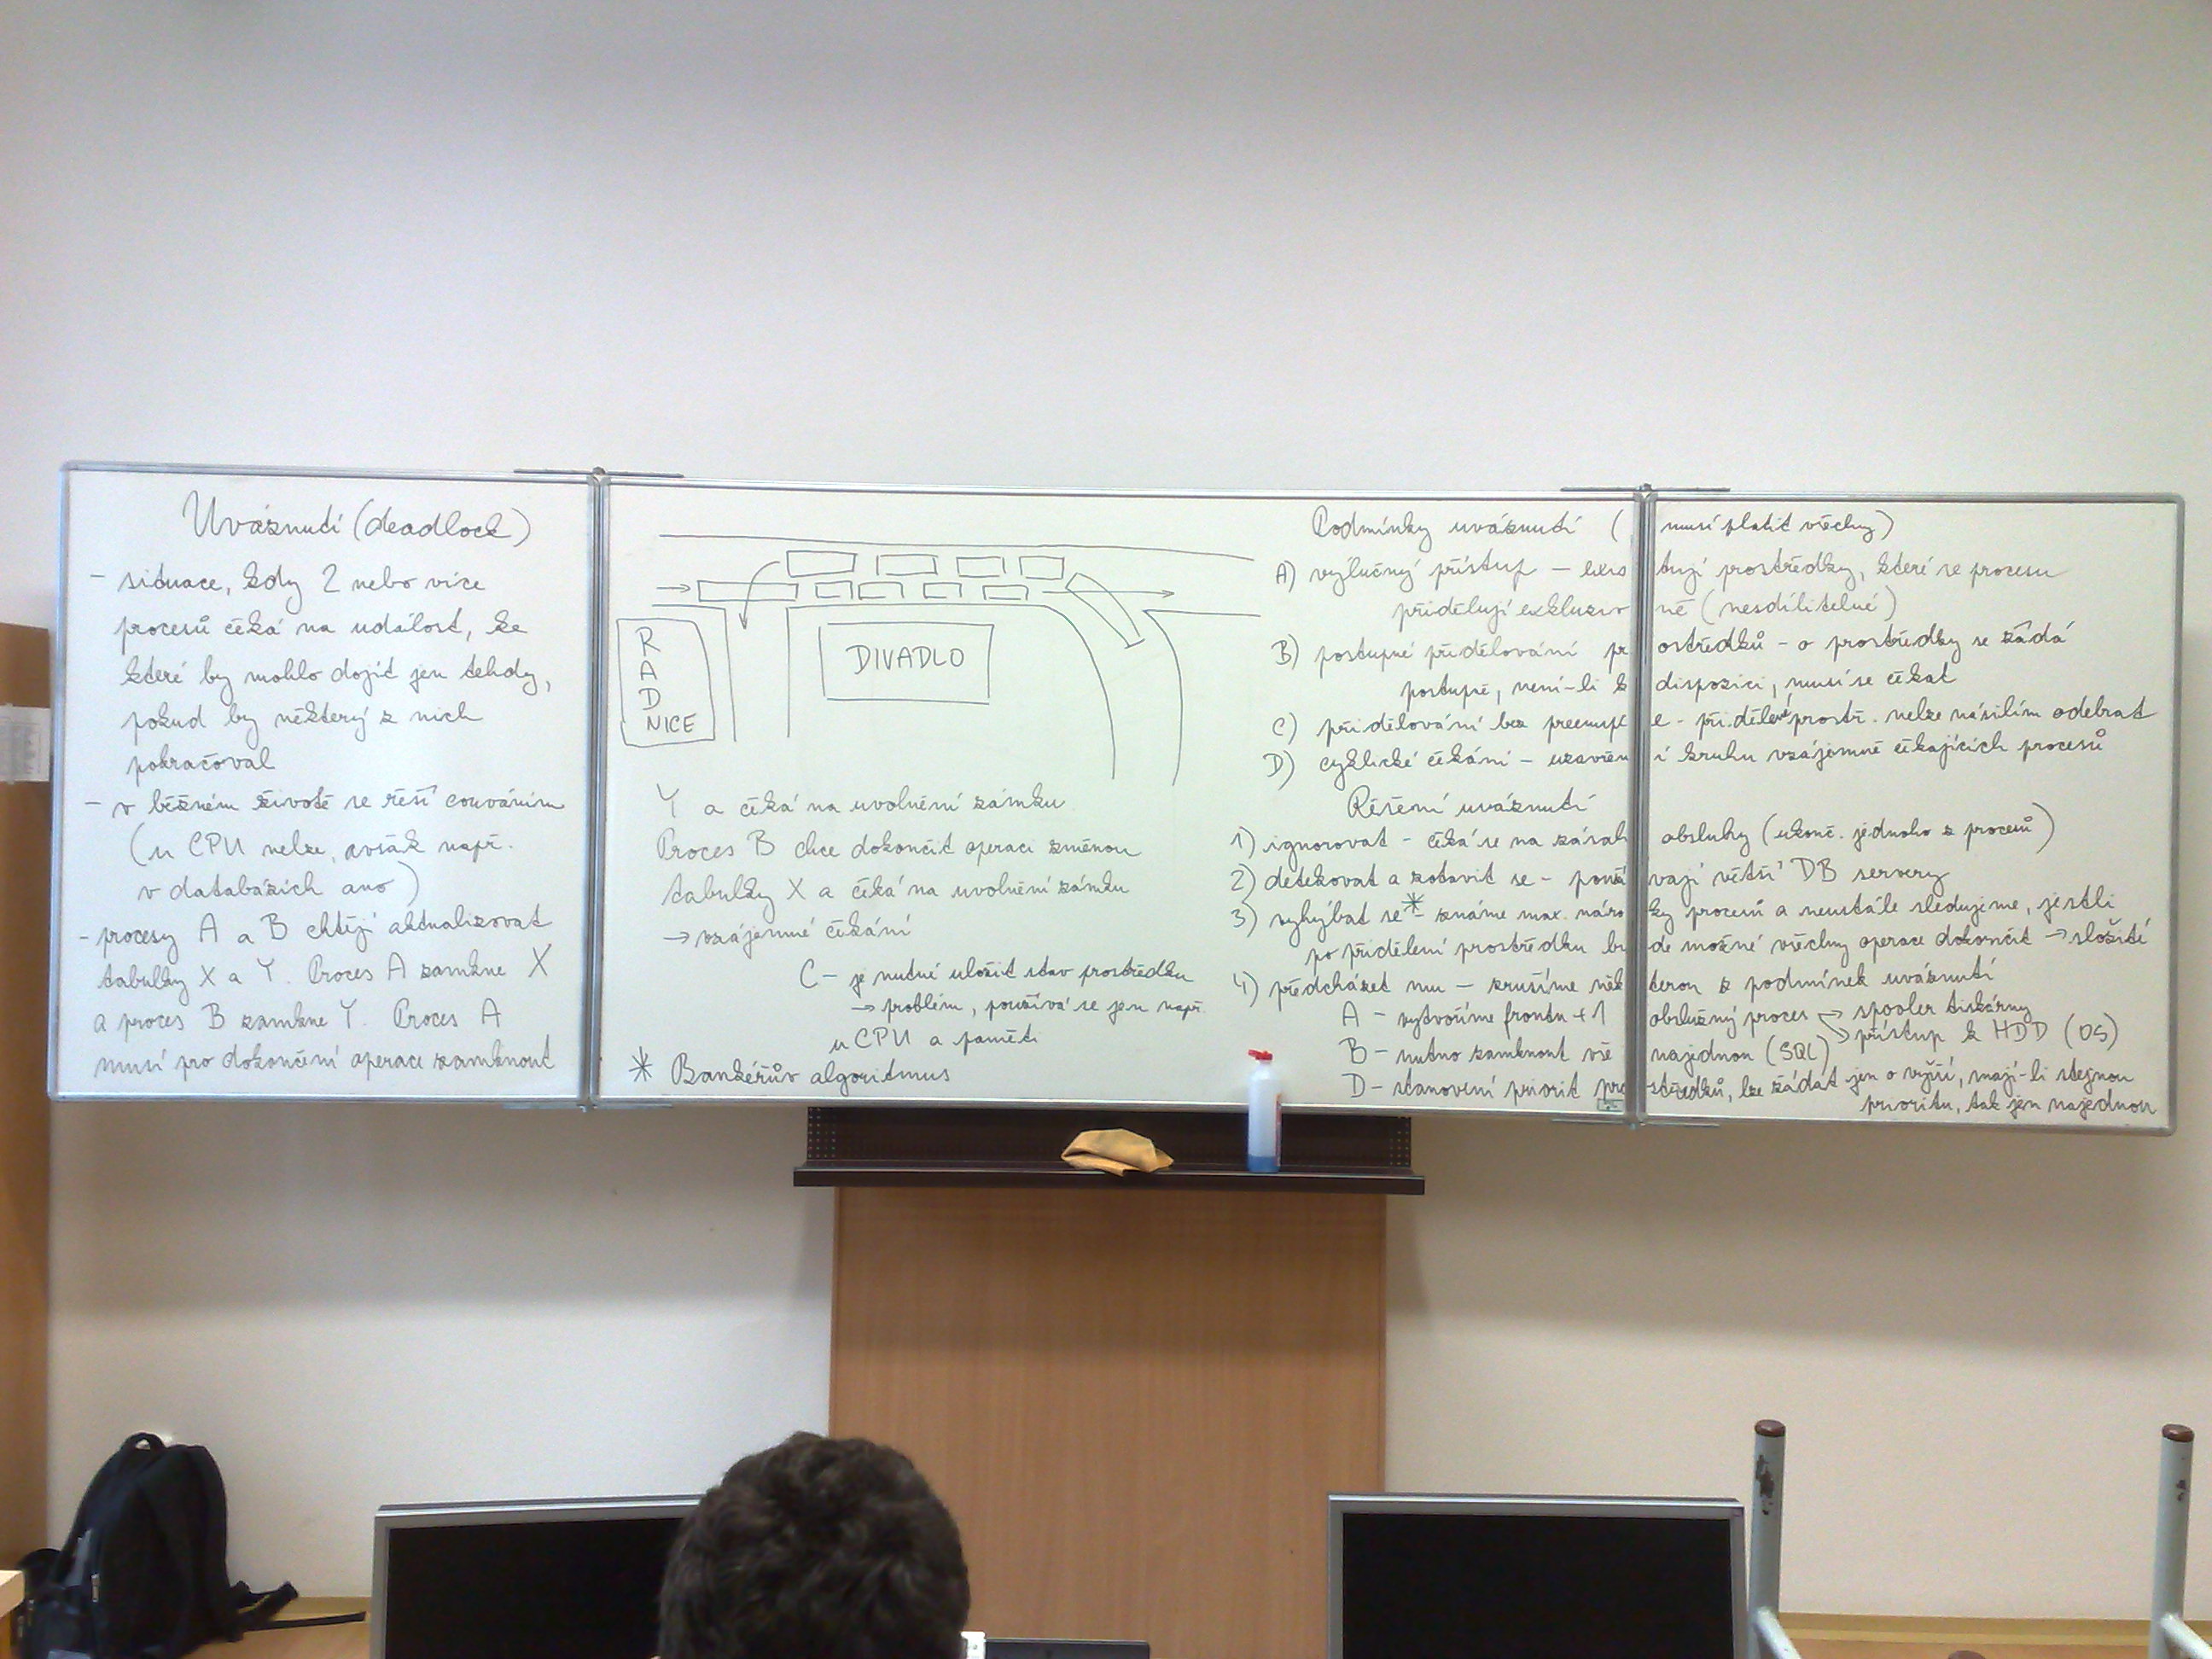 Uváznutí (deadlock)
- situace, kdy 2 nebo více
procesů čeká na událost, ke
které by mohlo dojít jen tehdy,
pokud by některý z nich
pokračoval
- v běžném životě se řeší couváním
(u CPU nelze, avšak např.
v databázích ano)
- procesy A a B chtějí aktualizovat
tabulky X a Y. Proces A zamkne X
a proces B zamkne Y. Proces A
musí pro dokončení operace zamknout
RADNICE
DIVADLO
Y a čeká na uvolnění zámku
Proces B chce dokončit operaci změnou
tabulky X a čeká na uvolnění zámku
→ vzájemné čekání
C - je nutné uložit stav prostředku
→ problém, používá se jen např.
u CPU a paměti
* Bankéřův algoritmus
Podmínky uváznutí (musí platit všechny)
A) výlučný přístup - existují prostředky, které se procesu
přidělují exkluzivně (nesdílitelné)
B) postupné přidělování prostředků - o prostředky se žádá
postupně, není-li k dispozici, musí se čekat
C) přidělování bez preempce - přidělené prostř. nelze násilím odebrat
D) cyklické čekání - uzavření kruhu vzájemně čekajících procesů
Řešení uváznutí
1) ignorovat - čeká se na zásah obsluhy (ukonč. jednoho z procesů)
2) detekovat a zotavit se - používají větší DB servery
3) vyhýbat se* - známe max. nároky procesů a neustále sledujeme, jestli
po přidělení prostředku bude možné všechny operace dokončit → složité
4) předcházet mu - zrušíme některou z podmínek uváznutí
A - vytvoříme frontu + 1 obslužný proces → spooler tiskárny
→ přístup k HDD (OS)
B - nutno zamknout vše najednou (SQL)
D - stanovení priorit prostředků, lze žádat jen o vyšší, mají-li stejnou
prioritu, tak jen najednou